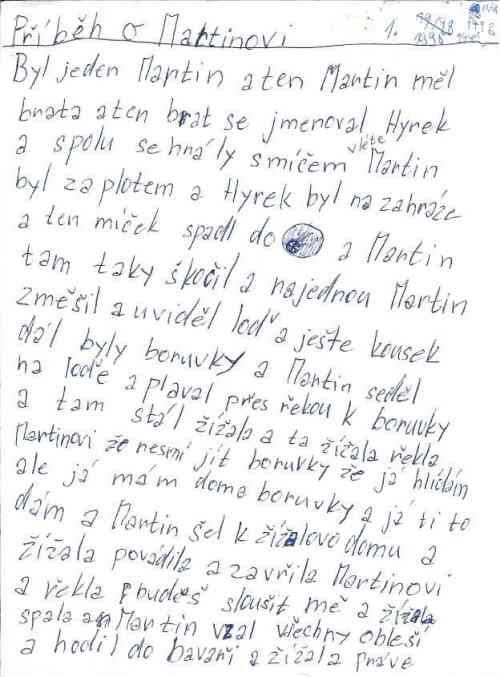 Příběh o Martinovi 1.
Byl jeden Martin a ten Martin měl
brata a ten brat se jmenoval Hyrek
a spolu se hrály s míčem vlěte Martin
byl za plotem a Hyrek byl na zahráže
a ten míček spadl do a Martin
tam taky škočil a najednou Martin
změšil a uviděl loď a ješte kousek
dál byly boruvky a Martin seděl
na loďe a plaval přes řekou k boruvky
a tam stál žížala a ta žížala řekla
Martinovi že nesmí jít boruvky že já hlídám
ale já mám doma boruvky a já ti to
dám a Martin šel k žížalovo domu a
žížala povádila a zavřila Martinovi
a řekla budeš sloušit mě a žížala
spala a Martin vzal všechny obleší
a hodil do bavaři a žížala práve